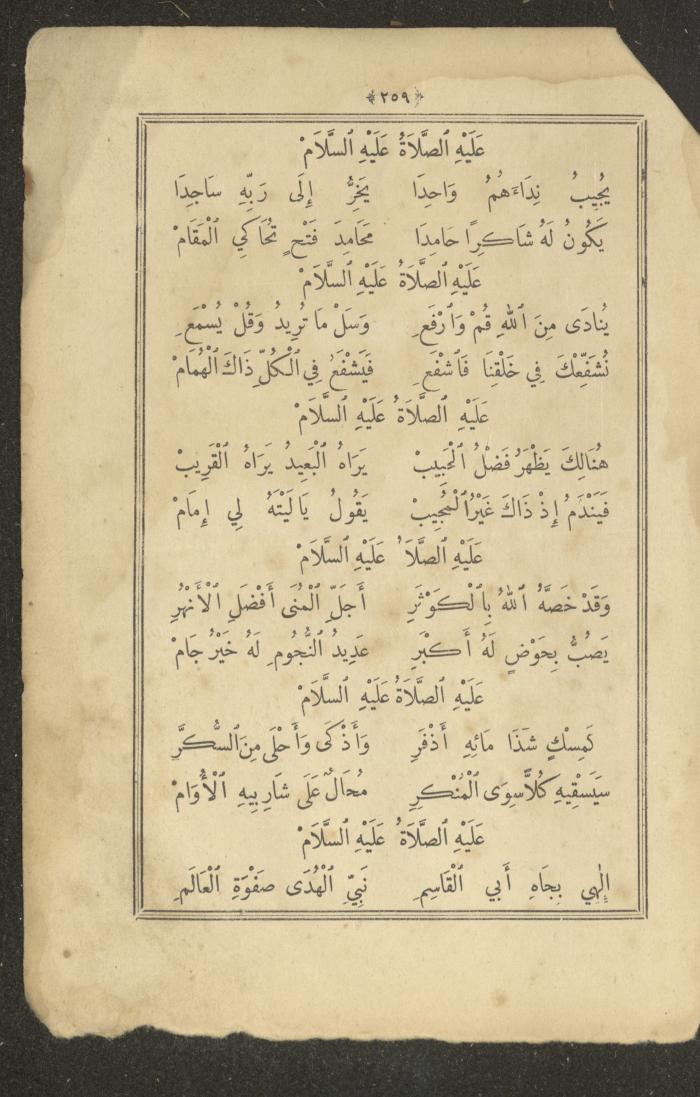 ﴿٢٥٩﴾
عَلَيْهِ ٱلصَّلَاةُ عَلَيْهِ ٱلسَّلَامْ
يُجِيبُ نِدَاءَهُمُ وَاحِدَا يَخِرُّ إِلَى رَبِّهِ سَاجِدَا
يَكُونُ لَهُ شَاكِرًا حَامِدَا مَحَامِدَ فَتْحٍ تُحَاكِي ٱلْمَقَامْ
عَلَيْهِ ٱلصَّلَاةُ عَلَيْهِ ٱلسَّلَامْ
يُنَادَى مِنَ ٱللهِ قُمْ وَٱرْفَعِ وَسَلْ مَا تُرِيدُ وَقُلْ يُسْمَعِ
نُشَفِّعْكَ فِي خَلْقِنَا فَٱشْفَعِ فَيَشْفَعُ فِي ٱلْكُلِّ ذَاكَ ٱلْهُمَامْ
عَلَيْهِ ٱلصَّلَاةُ عَلَيْهِ ٱلسَّلَامْ
هُنَالِكَ يَظْهَرُ فَضْلُ ٱلْحَبِيبْ يَرَاهُ ٱلْبَعِيدُ يَرَاهُ ٱلْقَرِيبْ
فَيَنْدَمُ إِذْ ذَاكَ غَيْرُ ٱلْمُجِيبْ يَقُولُ يَا لَيْتَهُ لِي إِمَامْ
عَلَيْهِ ٱلصَّلَاَ عَلَيْهِ ٱلسَّلَامْ
وَقَدْ خَصَّهُ ٱللهُ بِٱلْكَوْثَرِ أَجَلِّ ٱلْمُنَى أَفْضَلِ ٱلْأَنْهُرِ
يَصُبُّ بِحَوْضٍ لَهُ أَكْبَرِ عَدِيدُ ٱلنُّجُومِ لَهُ خَيْرُ جَامْ
عَلَيْهِ ٱلصَّلَاةُ عَلَيْهِ ٱلسَّلَامْ
كَمِسْكٍ شَذَا مَائِهِ أَذْفَرِ وَأَذْكَى وَأَحْلَى مِنَ ٱلسُّكَّرِ
سَيَسْقِيهِ كُلًّا سِوَى ٱلْمُنْكِرِ مُحَالٌ عَلَى شَارِبِيهِ ٱلْأُوَامْ
عَلَيْهِ ٱلصَّلَاةُ عَلَيْهِ ٱلسَّلَامْ
إِلٰهِي بِجَاهِ أَبِي ٱلْقَاسِمِ نَبِيِّ ٱلْهُدَى صَفْوَةِ ٱلْعَالَمِ